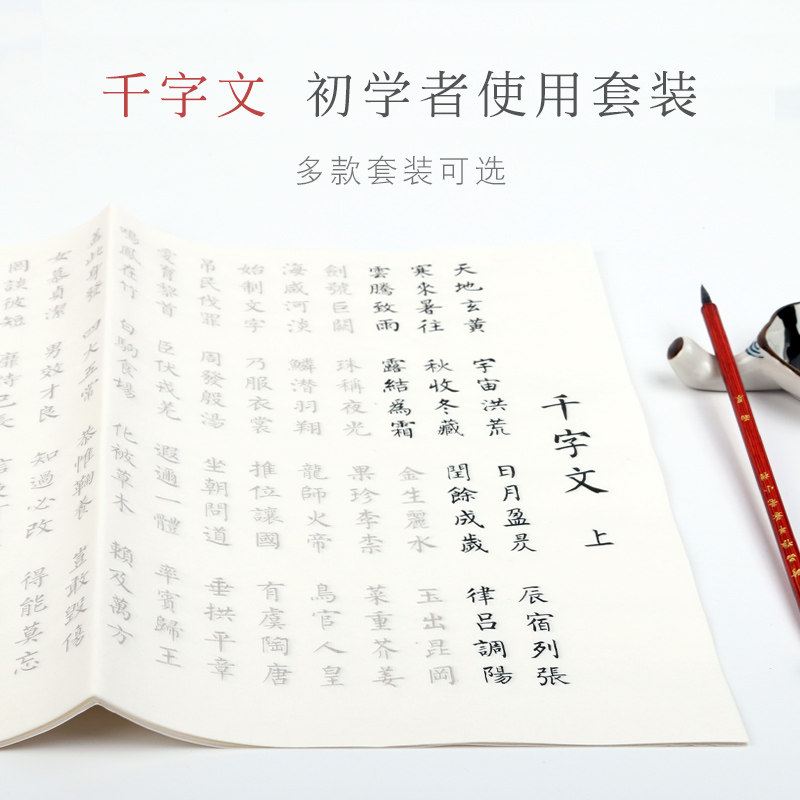 千字文 初学者使用套装
多款套装可选
千字文 上
天地玄黄 宇宙洪荒 日月盈昃 辰宿列張
寒來暑往 秋收冬藏 閏餘成歲 律呂調陽
雲騰致雨 露結為霜 金生麗水 玉出昆岡
劍號巨闕 珠稱夜光 果珍李柰 菜重芥姜
海咸河淡 鱗潛羽翔 龍師火帝 鳥官人皇
始制文字 乃服衣裳 推位讓國 有虞陶唐
吊民伐罪 周發殷湯 坐朝問道 垂拱平章
愛育黎首 臣伏戎羌 遐邇一體 率賓歸王
鳴鳳在竹 白駒食場 化被草木 賴及萬方
蓋此身發 四大五常 恭惟鞠養 豈敢毀傷
女慕貞潔 男效才良 知過必改 得能莫忘
罔談彼短 靡恃己長